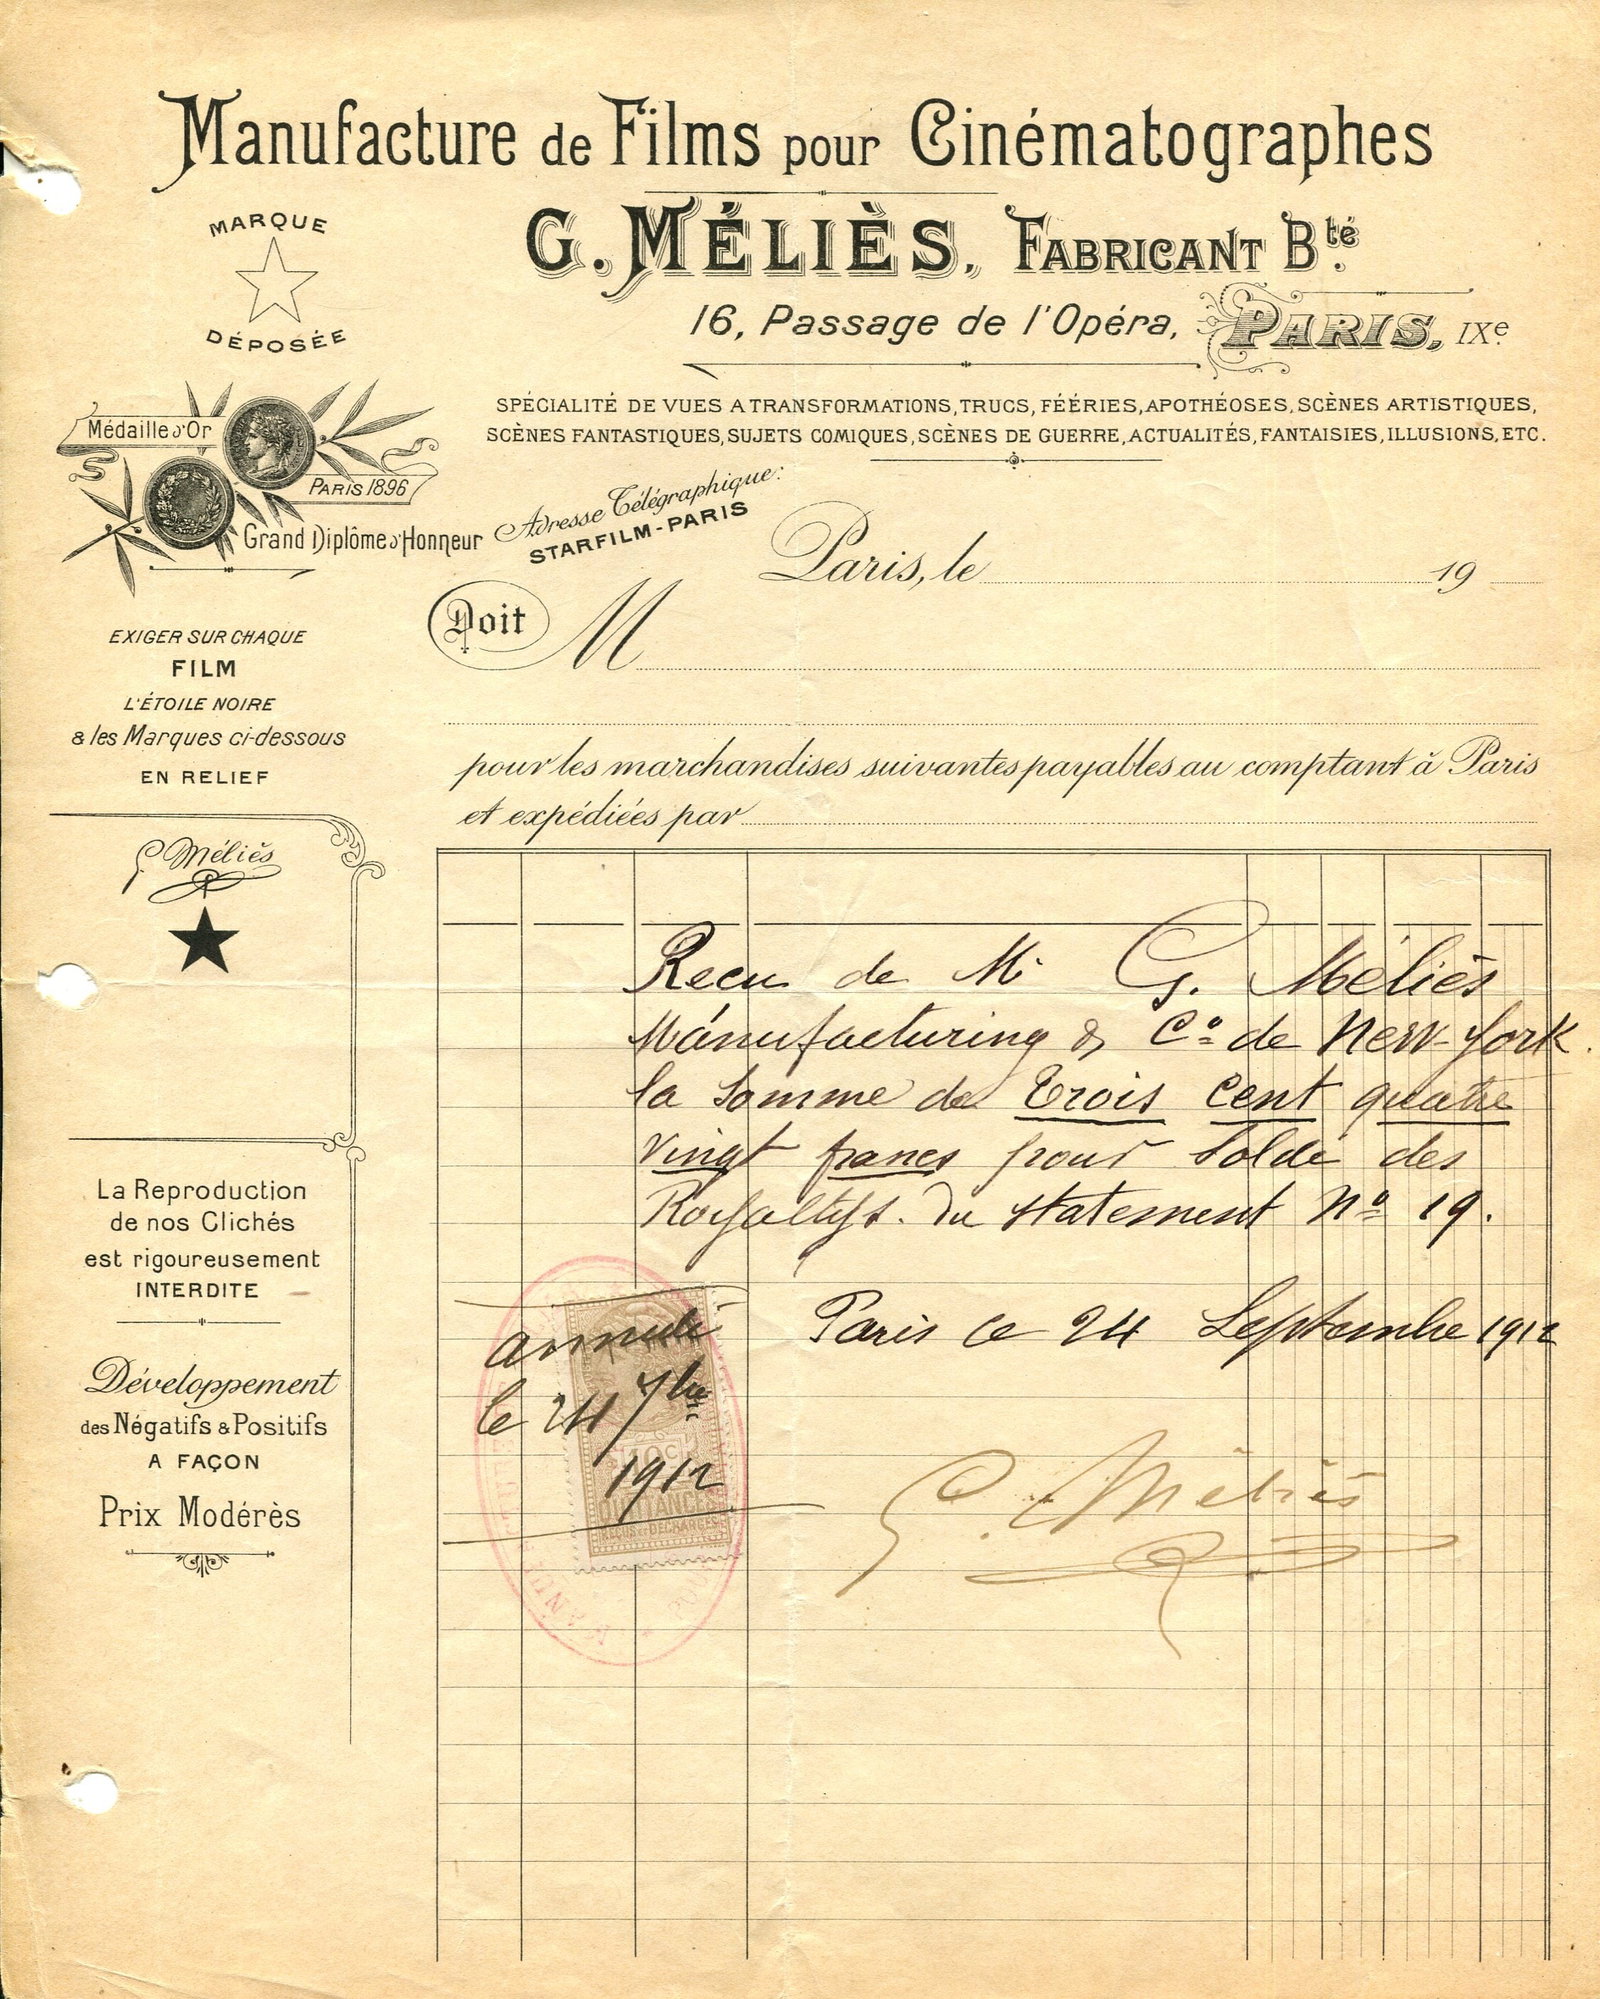 Manufacture de Films pour Cinématographes
G. MÉLIÈS, FABRICANT Bté.
16, Passage de l'Opéra, PARIS, IXe
MARQUE
DÉPOSÉE
SPÉCIALITÉ DE VUES A TRANSFORMATIONS, TRUCS, FÉÉRIES, APOTHÉOSES, SCÈNES ARTISTIQUES,
SCÈNES FANTASTIQUES, SUJETS COMIQUES, SCÈNES DE GUERRE, ACTUALITÉS, FANTAISIES, ILLUSIONS, ETC.
Médaille d'Or
PARIS 1896
Grand Diplôme d'Honneur
Adresse Télégraphique:
STARFILM-PARIS
Paris, le 19
Doit M
EXIGER SUR CHAQUE
FILM
L'ÉTOILE NOIRE
& les Marques ci-dessous
EN RELIEF
pour les marchandises suivantes payables au comptant à Paris
et expédiées par
G. Méliès
La Reproduction
de nos Clichés
est rigoureusement
INTERDITE
Développement
des Négatifs & Positifs
A FAÇON
Prix Modérès
Recu de M. G. Méliès
Manufacturing & Co de New-York.
la somme de trois cent quatre
vingt francs pour solde des
Royaltys. du statement No 19.
Paris le 24 Septembre 1912
annulé
le 24 7bre
1912
10c
QUITTANCES
REÇUS ET DÉCHARGES
G. Méliès